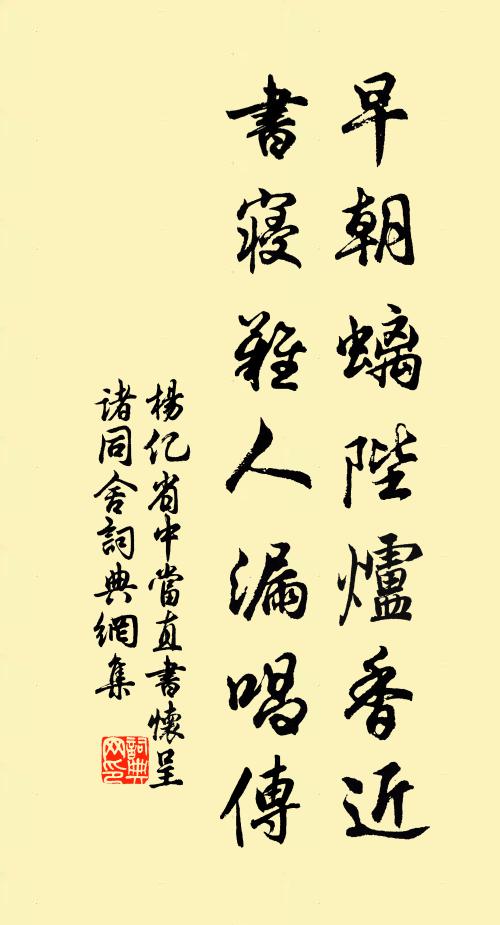 早朝螭陛爐香近
書寢雞人漏唱傳
楊億省中當直書懷呈
諸同舍詞典網集
詞典
网印